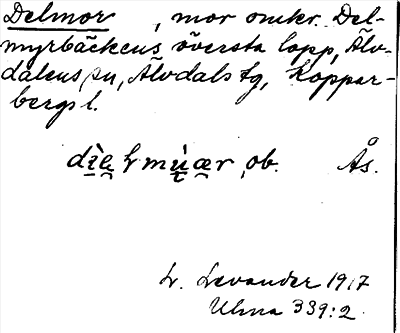 Delmor, mor omkr. Del-
myrbäckens översta lopp, Älv-
dalens sn, Älvdals tg, Koppar-
bergs l.
ob. Ås.
L. Levander 1917
Ulma 339:2.